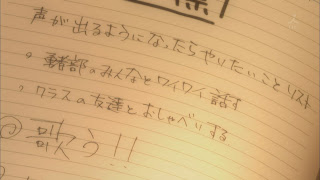 声が出るようになったらやりたいことリスト
。勇者部のみんなとワイワイ話す
。クラスの友達とおしゃべりする
歌う!!